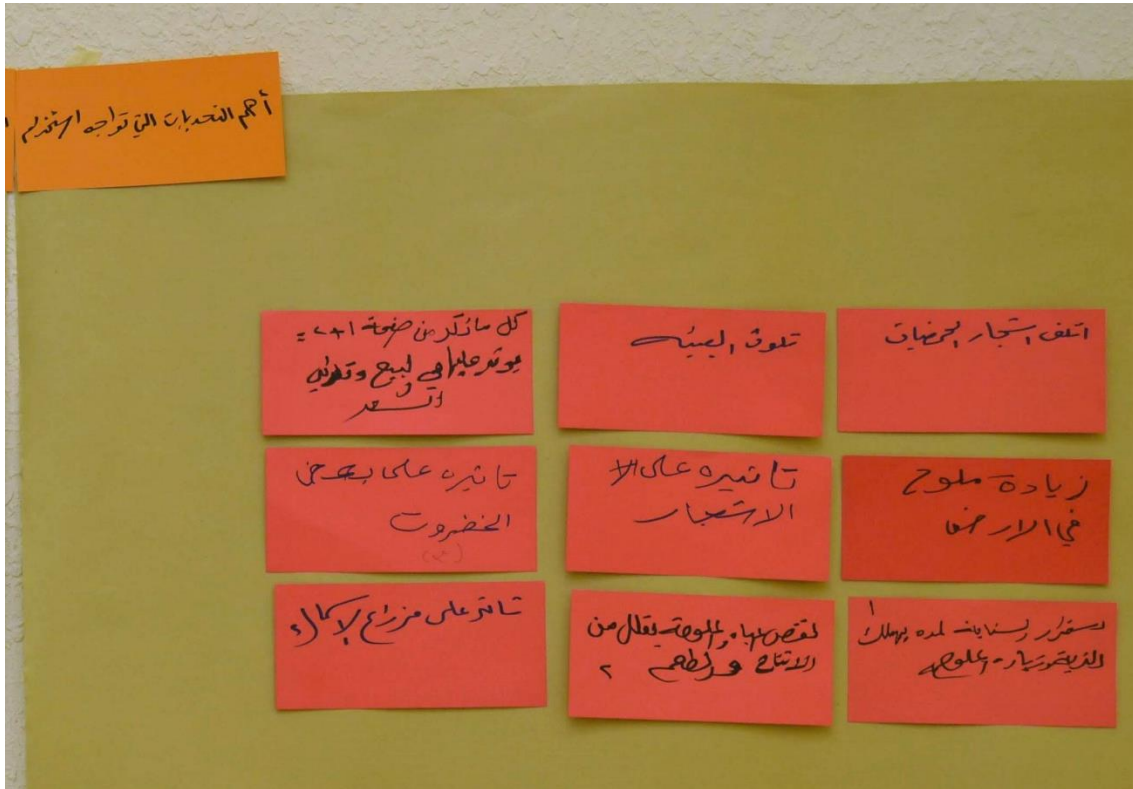 أهم التحديات التي تواجه استخدام
اتلف اشجار الحمضيات
تلوث البيئه
كل ما ذكر من صفحة ١+٢ =
يوثر عليها في لبيع وتدني
السعر
زيادة ملوح
في الارض
تا ثيره على الا
الاشجار
تا ثيره على بعض
الخضروت
١
لمده يهلك
التربة وزيادت الملوحه
لنقص المياه والملوحة يقلل من
الانتاج والطعم ٢
تاثر على مزراع الاسماك